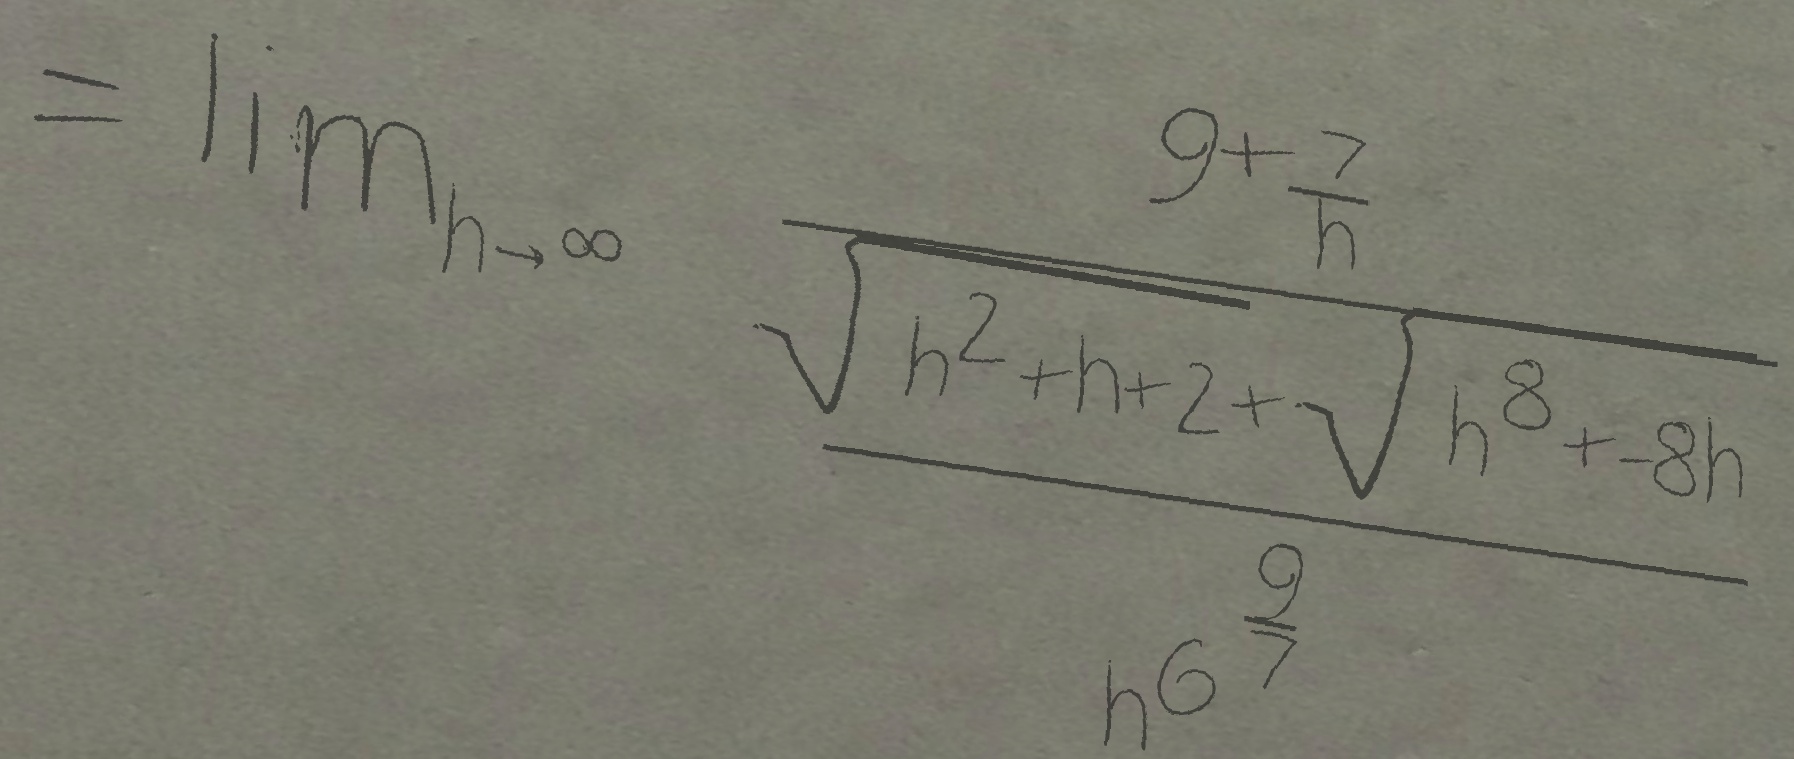 = \lim_{h \to \infty} \frac{9 + \frac{7}{h}}{\frac{\sqrt{h^2 + h + 2} + \sqrt{h^8 + -8h}}{h^{6^{\frac{9}{7}}}}}